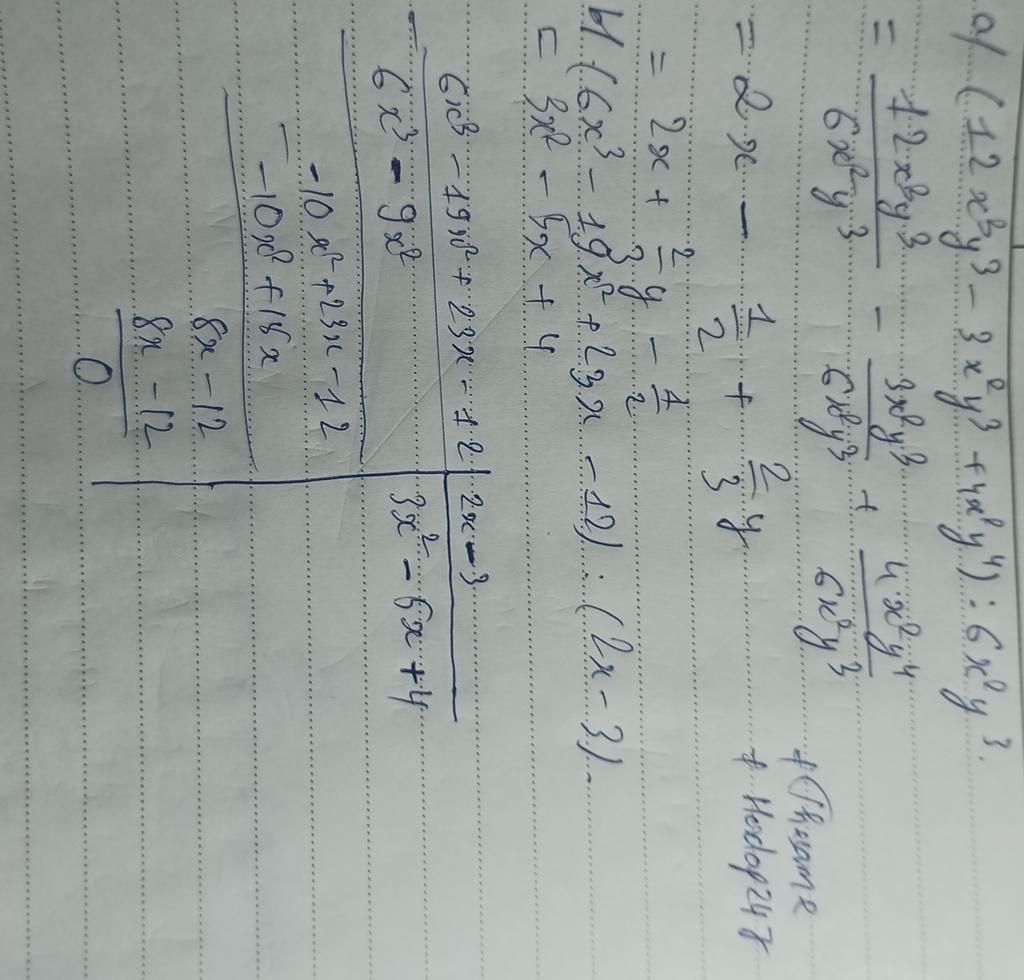 a/ (12x³y³ - 3x²y³ + 4x²y⁴) : 6x²y³.
= 12x³y³/6x²y³ - 3x²y³/6x²y³ + 4x²y⁴/6x²y³
+
+ Hoidap247
= 2x - 1/2 + 2/3 y
= 2x + 2/3 y - 1/2
b/ (6x³ - 19x² + 23x - 12) : (2x - 3).
= 3x² - 5x + 4
6x³ - 19x² + 23x - 12 | 2x - 3
- 6x³ - 9x² | 3x² - 5x + 4
-10x² + 23x - 12
- -10x² + 15x
8x - 12
8x - 12
0